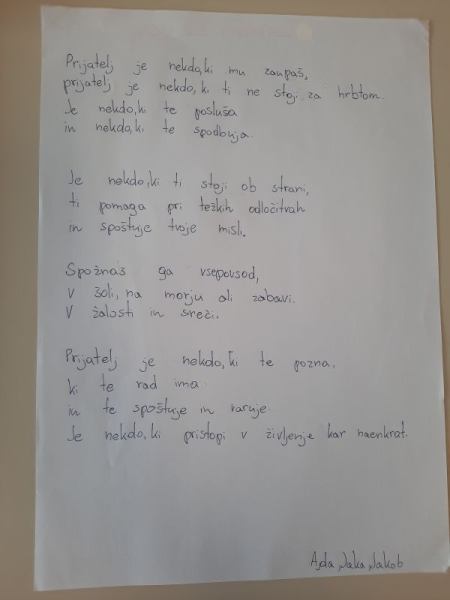 Prijatelj je nekdo, ki mu zaupaš,
prijatelj je nekdo, ki ti ne stoji za hrbtom.
Je nekdo, ki te posluša
in nekdo, ki te spodbuja.
Je nekdo, ki ti stoji ob strani,
ti pomaga pri težkih odločitvah
in spoštuje tvoje misli.
Spoznaš ga vsepovsod,
v šoli, na morju ali zabavi.
V žalosti in sreči.
Prijatelj je nekdo, ki te pozna.
ki te rad ima
in te spoštuje in varuje.
Je nekdo, ki pristopi v življenje kar naenkrat.
Ajda, Jaka, Jakob